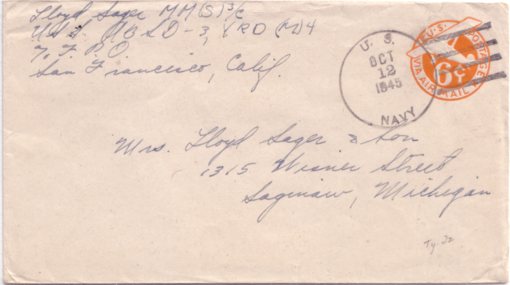 Lloyd Sager MM(S)3/C
U.S.S. LSD-3, VRD (M)4
% F.P.O.
San Francisco, Calif.
U. S.
OCT
12
1945
NAVY
U.S. POSTAGE
6¢
VIA AIR MAIL
Mrs. Lloyd Sager & Son
1315 Wisner Street
Saginaw, Michigan